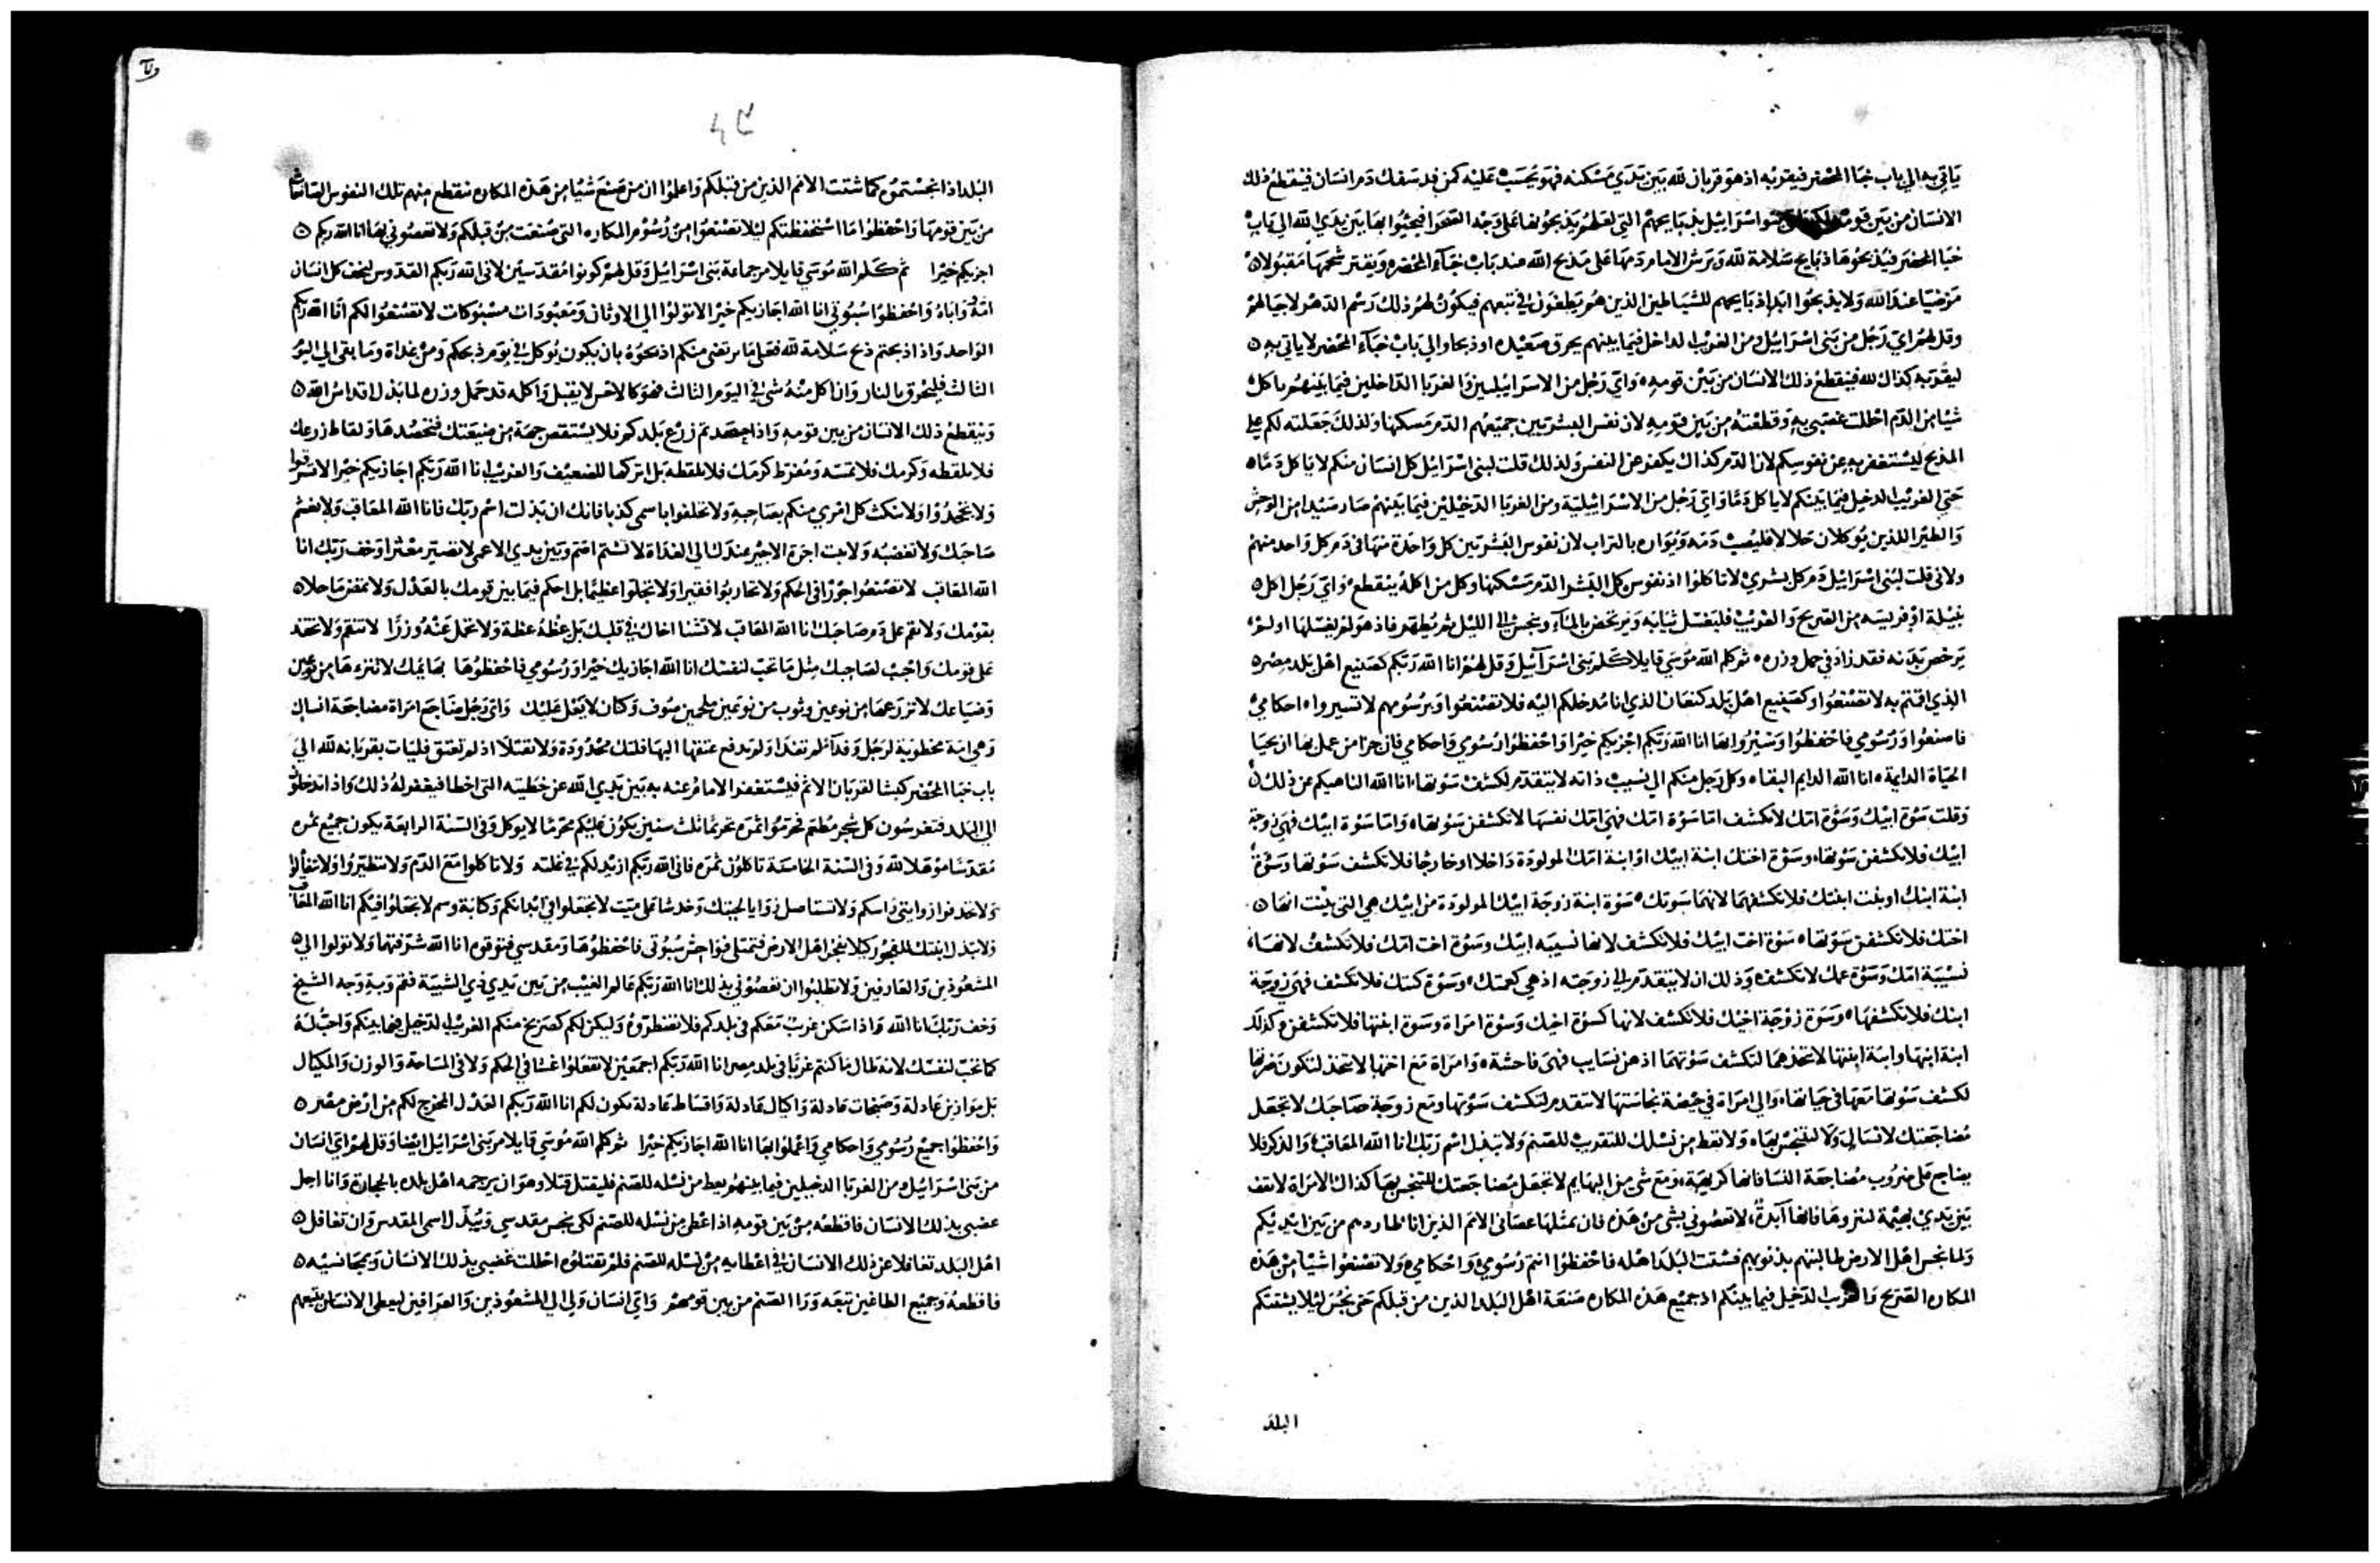 ياتي به الي باب خبا المحضر فيقربه اذ هو قربان لله بين يدي مسكنه فهو يحسب عليه كمن قد سفك دم انسان فينقطع ذلك
الانسان من بين قومه بنو اسرائيل بذبايحهم التي لعلهم يذبحونها على وجه الصحرا فيجيئوا بها بين يدي الله الي باب
خبا المحضر فيذبحوها ذبايح سلامة لله ويرش الامام دمها على مذبح الله عند باب خباء المحضر ويقتر شحمها مقبولا
مرضيا عند الله ولا يذبحوا ابدا ذبايحهم للشياطين الذين هم يطغون في تبعهم فيكون لهم ذلك رسم الدهر لاجيالهم
وقل لهم اي رجل من بني اسرائيل ومن الغريب الداخل فيما بينهم يحرق صعيده او ذبحا والي باب خباء المحضر لا ياتي به
ليقربه كذاك لله فينقطع ذلك الانسان من بين قومه واي رجل من الاسرائيليين والغربا الداخلين فيما بينهم ياكل
شيا من الدم احللت غضبي به وقطعته من بين قومه لان نفس البشريين جميعهم الدم مسكنها ولذلك جعلته لكم على
المذبح ليستغفر به عن نفوسكم لان الدم كذاك يكفر عن النفس ولذلك قلت لبني اسرائيل كل انسان منكم لا ياكل دما
حتي الغريب الدخيل فيما بينكم لا ياكل دما واي رجل من الاسرائيلية ومن الغربا الدخيلين فيما بينهم صار صيدا من الوحش
والطير اللذين يوكلان حلالا فليصب دمه ويواره بالتراب لان نفوس البشريين كل واحدة منها في دم كل واحد منهم
ولاني قلت لبني اسرائيل دم كل بشري لا تاكلوا اذ نفوس كل البشر الدم مسكنها وكل من اكله ينقطع واي رجل اكل
نبيلة او فريسه من الصريح والغريب فليغسل ثيابه ويرتحض بالماء وينجس الى الليل ثم يطهر فاذ هو لم يغسلها او لم
يرحض بدنه فقد زاد في حمل وزره ثم كلم الله موسي قايلا كلم بني اسرائيل وقل لهم انا الله ربكم كصنيع اهل بلد مصر
الذي اقمتم به لا تصنعوا وكصنيع اهل بلد كنعان الذي انا مدخلكم اليه فلا تصنعوا وبرسومهم لا تسيروا احكامي
فاصنعوا ورسومي فاحفظوا وسيروا بها انا الله ربكم اجزيكم خيرا واحفظوا رسومي واحكامي فان جزا من عمل بها ان يحيا
الحياة الدايمة انا الله الدايم البقاء وكل رجل منكم الي نسيب ذاته لا يتقدم لكشف سوتها انا الله الناهيكم عن ذلك
وقلت سوة ابيك وسوة امك لا تكشف اما سوة امك فهي امك نفسها لا تكشفن سوتها واما سوة ابيك فهي زوجة
ابيك فلا تكشفن سوتها وسوة اختك ابنة ابيك او ابنة امك المولودة داخلا او خارجا فلا تكشف سوتها وسوة
ابنة ابنك او بنت ابنتك فلا تكشفهما لانهما سوتك سوة ابنة زوجة ابيك المولودة من ابيك هي التي بينت انها
اختك فلا تكشفن سوتها سوة اخت ابيك فلا تكشف لانها نسيبه ابيك وسوة اخت امك فلا تكشف لانها
نسيبة امك وسوة عمك لا تكشف وذلك ان لا يتقدم الي زوجته اذ هي كعمتك وسوة كنتك فلا تكشف فهي زوجة
ابنك فلا تكشفها وسوة زوجة اخيك فلا تكشف لانها كسوة اخيك وسوة امراة وسوة ابنتها فلا تكشفن وكذلك
ابنة ابنها وابنة ابنتها لا تتخذهما لتكشف سوتهما اذ هن نسايب فهي فاحشة وامراة مع اختها لا تتخذ لتكون ضرتها
لكشف سوتها معها في حياتها والي امراة في حيضة نجاستها لا تتقدم لتكشف سوتها ومع زوجة صاحبك لا تجعل
مضاجعتك لانسالي ولا لتنجس بها ولا تعط من نسلك للتقريب للصنم ولا تبذل اسم ربك انا الله المعاقب والذكر فلا
يضاجع على ضروب مضاجعة النسا فانها كريهة ومع شي من البهايم لا تجعل مضاجعتك للتنجس بها كذاك الامراة لا تقف
بين يدي بهيمة لنزوها فانها آبدة لا تعصوني بشي من هذه فان بمثلها عصاني الامم الذين انا طاردهم من بين ايديكم
ولما نجس اهل الارض طالبتهم بذنوبهم فشتت البلد اهله فاحفظوا انتم رسومي واحكامي ولا تصنعوا شيا من هذه
المكاره الصريح والغريب الدخيل فيما بينكم اذ جميع هذه المكاره صنعة اهل البلد الذين من قبلكم حتي نجس ليلا يشتتكم
البلد
البلد اذا نجستموه كما شتت الامم الذين من قبلكم واعلموا ان من صنع شيا من هذه المكاره تنقطع منهم تلك النفوس الصانعات
من بين قومها واحفظوا ما استحفظتكم ليلا تصنعوا من رسوم المكاره التي صنعت من قبلكم ولا تعصوني بها انا الله ربكم
اجزيكم خيرا ثم كلم الله موسي قايلا مر جماعة بني اسرائيل وقل لهم كونوا مقدسين لاني الله ربكم القدوس ليخف كل انسان
امه واباه واحفظوا سبوتي انا الله اجازيكم خيرا لا تولوا الي الاوثان ومعبودات مسبوكات لا تصنعوا لكم انا الله ربكم
الواحد واذا ذبحتم ذبح سلامة لله فعلى ما يرتضي منكم اذبحوه بان يكون يوكل في يوم ذبحكم ومن غداة وما بقي الي اليوم
الثالث فليحرق بالنار وان اكل منه شي في اليوم الثالث فهو كالاخس لا يقبل واكله قد حمل وزره لما بذل اقداس الله
وينقطع ذلك الانسان من بين قومه واذا حصدتم زرع بلدكم فلا يستقص جهة من ضيعتك فتحصدها ولقاط زرعك
فلا تلقطه وكرمك فلا تمسه ومفرط كرمك فلا تلقطه بل اتركها للضعيف والغريب انا الله ربكم اجازيكم خيرا لا تسرقوا
ولا تجحدوا ولا ينكث كل امري منكم بصاحبه ولا تحلفوا باسمي كذبا فانك ان بذلت اسم ربك فانا الله المعاقب ولا تغشم
صاحبك ولا تغصبه ولا يبت اجرة الاجير عندك الي الغداة لا تشتم اصم وبين يدي الاعمى لا تصير معثرا وخف ربك انا
الله المعاقب لا تصنعوا جورا في الحكم ولا تحاربوا فقيرا ولا تجلوا عظيما بل احكم فيما بين قومك بالعدل ولا تمض ماحلا
بقومك ولا تقم على دم صاحبك انا الله المعاقب لا تشنا اخاك في قلبك بل عظه عظة ولا تحمل عنه وزرا لا تنتقم ولا تحقد
على قومك واحب لصاحبك مثل ما تحب لنفسك انا الله اجازيك خيرا ورسومي فاحفظوها بهايمك لا تنزءها من نوعين
وضياعك لا تزرعها من نوعين وثوب من نوعين ملحمين صوف وكتان لا يعل عليك واي رجل ضاجع امراة مضاجعة انسال
وهي امة مخطوبة لرجل وفداء لم تفدا ولم يدفع عتقها اليها فلتك محدودة ولا تقتلا اذ لم تعتق فليات بقربانه لله الي
باب خبا المحضر كبشا لقربان الاثم فيستغفر الامام عنه به بين يدي الله عن خطيته التي اخطا فيغفر له ذلك واذا تدخلون
الي البلد فتغرسون كل شجر مطعم فحرموا ثمره تحريما ثلث سنين يكون عليكم محرما لا يوكل وفي السنة الرابعة يكون جميع ثمره
مقدسا موهلا لله وفي السنة الخامسة تاكلون ثمره فاني الله ربكم ازيد لكم في غلته ولا تاكلوا مع الدم ولا تتطيروا ولا تتفألوا
ولا تحذفوا زوايتي راسكم ولا تستاصل زوايا لحيتك وخدشا على ميت لا تجعلوا في ابدانكم وكتابة وسم لا تجعلوا فيكم انا الله المعاقب
ولا تبذل ابنتك للفجور كيلا يفجر اهل الارض فتمتلي فواحش سبوتي فاحفظوها ومقدسي فتوقوه انا الله شرفتهما ولا تولوا الي
المشعوذين والعارفين ولا تطلبوا ان تعصوني بذلك انا الله ربكم عالم الغيب من بين يدي ذي الشيبة فقم وبه وجه الشيخ
وخف ربك انا الله واذا سكن غريب معكم في بلدكم فلا تضطروه وليكن لكم كصريح منكم الغريب الدخيل فيما بينكم واحب له
كما تحب لنفسك لانه طال ما كنتم غربا في بلد مصر انا الله ربكم اجمعين لا تفعلوا غشا في الحكم ولا في المساحة والوزن والمكيال
بل موازين عادلة وصنجات عادلة واكيال عادلة واقساط عادلة يكون لكم انا الله ربكم العدل المخرج لكم من ارض مصر
واحفظوا جميع رسومي واحكامي واعملوا بها انا الله اجازيكم خيرا ثم كلم الله موسي قايلا مر بني اسرائيل ايضا وقل لهم اي انسان
من بني اسرائيل ومن الغربا الدخيلين فيما بينهم يعط من نسله للصنم فليقتل قتلا وهو ان يرجمه اهل بلده بالحجارة وانا احل
غضبي بذلك الانسان فاقطعه من بين قومه اذ اعطي من نسله للصنم لكي ينجس مقدسي ويبذل اسمي المقدس وان تغافل
اهل البلد تغافلا عن ذلك الانسان في اعطايه من نسله للصنم فلم تقتلوه احللت غضبي بذلك الانسان وبمجانسيه
فاقطعه وجميع الطاغين تبعه ورا الصنم من بين قومهم واي انسان ولي الي المشعوذين والعرافين ليطغى الانسان بتبعهم